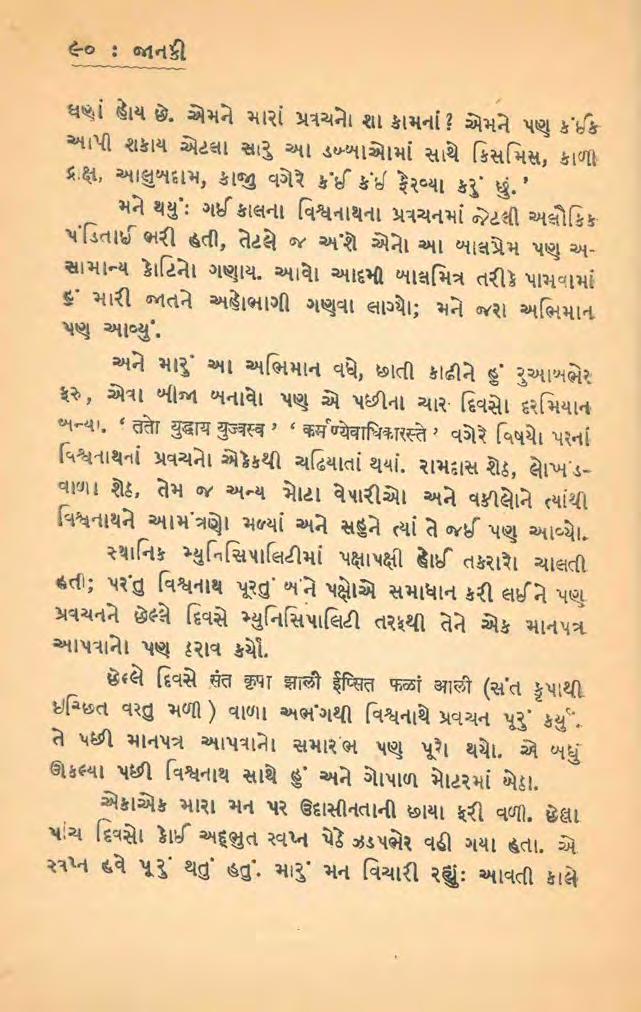 ૯૦ : જાનકી
ઘણાં હોય છે. એમને મારાં પ્રવચનો શા કામનાં? એમને પણ કંઈક
આપી શકાય એટલા સારુ આ ડબ્બાઓમાં સાથે કિસમિસ, કાળી
દ્રાક્ષ, આલુબદામ, કાજુ વગેરે કંઈ કંઈ ફેરવ્યા કરું છું.’
મને થયું: ગઈ કાલના વિશ્વનાથના પ્રવચનમાં જેટલી અલૌકિક
પંડિતાઈ ભરી હતી, તેટલે જ અંશે એનો આ બાલપ્રેમ પણ અ-
સામાન્ય કોટિનો ગણાય. આવો આદમી બાલમિત્ર તરીકે પામવામાં
હું મારી જાતને અહોભાગી ગણવા લાગ્યો; મને જરા અભિમાન
પણ આવ્યું.
અને મારું આ અભિમાન વધે, છાતી કાઢીને હું રુઆબભેર
ફરુ, એવા બીજા બનાવો પણ એ પછીના ચાર દિવસો દરમિયાન
બન્યા. ‘ ततो युद्धाय युज्यस्व ’ ‘ कर्मण्येवाधिकारस्ते ’ વગેરે વિષયો પરનાં
વિશ્વનાથનાં પ્રવચનો એકેકથી ચઢિયાતાં થયાં. રામદાસ શેઠ, લોખંડ-
વાળા શેઠ, તેમ જ અન્ય મોટા વેપારીઓ અને વકીલોને ત્યાંથી
વિશ્વનાથને આમંત્રણો મળ્યાં અને સહુને ત્યાં તે જઈ પણ આવ્યો.
સ્થાનિક મ્યુનિસિપાલિટીમાં પક્ષાપક્ષી હોઈ તકરારો ચાલતી
હતી; પરંતુ વિશ્વનાથ પૂરતું બંને પક્ષોએ સમાધાન કરી લઈને પણ
પ્રવચનને છેલ્લે દિવસે મ્યુનિસિપાલિટી તરફથી તેને એક માનપત્ર
આપવાનો પણ ઠરાવ કર્યો.
છેલ્લે દિવસે संत कृपा झाली ईप्सित फळां आली (સંત કૃપાથી
ઇચ્છિત વસ્તુ મળી ) વાળા અભંગથી વિશ્વનાથે પ્રવચન પૂરું કર્યું.
તે પછી માનપત્ર આપવાનો સમારંભ પણ પૂરો થયો. એ બધું
ઊકલ્યા પછી વિશ્વનાથ સાથે હું અને ગોપાળ મોટરમાં બેઠા.
એકાએક મારા મન પર ઉદાસીનતાની છાયા ફરી વળી. છેલ્લા
પાંચ દિવસો કોઈ અદ્દભુત સ્વપ્ન પેઠે ઝડપભેર વહી ગયા હતા. એ
સ્વપ્ન હવે પૂરું થતું હતું. મારું મન વિચારી રહ્યું: આવતી કાલે